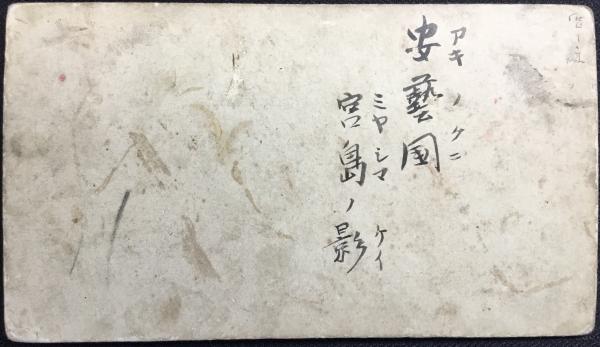 安藝國
アキノクニ
宮島ノ影
ミヤシマ ケイ